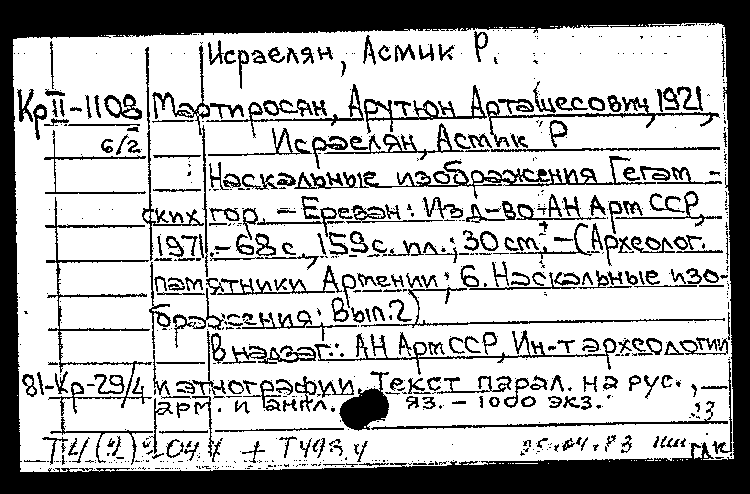 Исраелян, Асмик Р.
Кр II-1108 Мартиросян, Арутюн Арташесович, 1921,
6/2 Исраелян, Асмик Р
Наскальные изображения Гегам-
ских гор. – Ереван: Изд-во АН Арм ССР,
1971. – 68 с., 159 с. ил.; 30 см. – (Археолог.
памятники Армении; 6. Наскальные изо-
бражения; Вып. 2)
В надзаг.: АН Арм ССР, Ин-т археологии
81-Кр-29/4 и этнографии. Текст парал. на рус.,
арм. и англ. яз. – 1000 экз.
23
Т4(2)204.4 + Т493.4